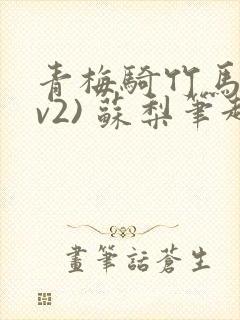 青梅騎竹馬
v2) 蘇梨筆趣
畫筆話蒼生